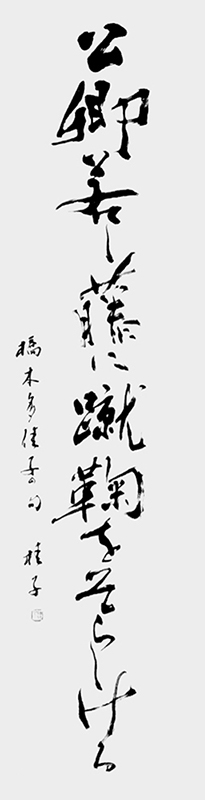 公卿若し藤に蹴鞠をそらしける
橋本多佳子の句 桂子